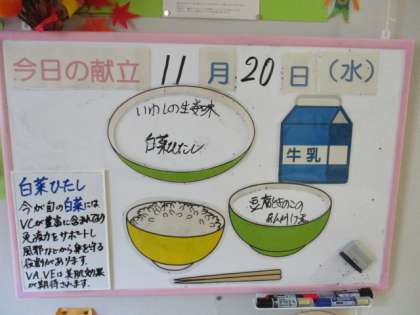 今日の献立 11月20日(水)
いわしの生姜味
白菜ひたし
牛乳
豆腐ときのこの
あんかけ
白菜ひたし
今が旬の白菜には
VCが豊富に含まれており
免疫力をサポートし
風邪などから身を守る
役割があります。
VA,VEは美肌効果
が期待されます。